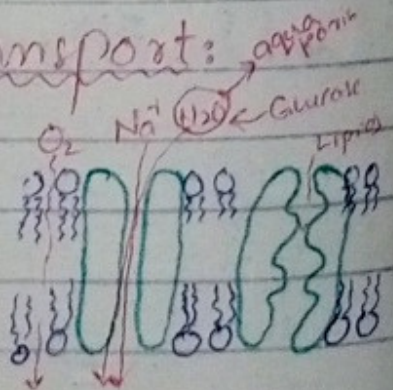 nsport:
aqua
porin
O2 Na+ H2O Glucose
Lipid